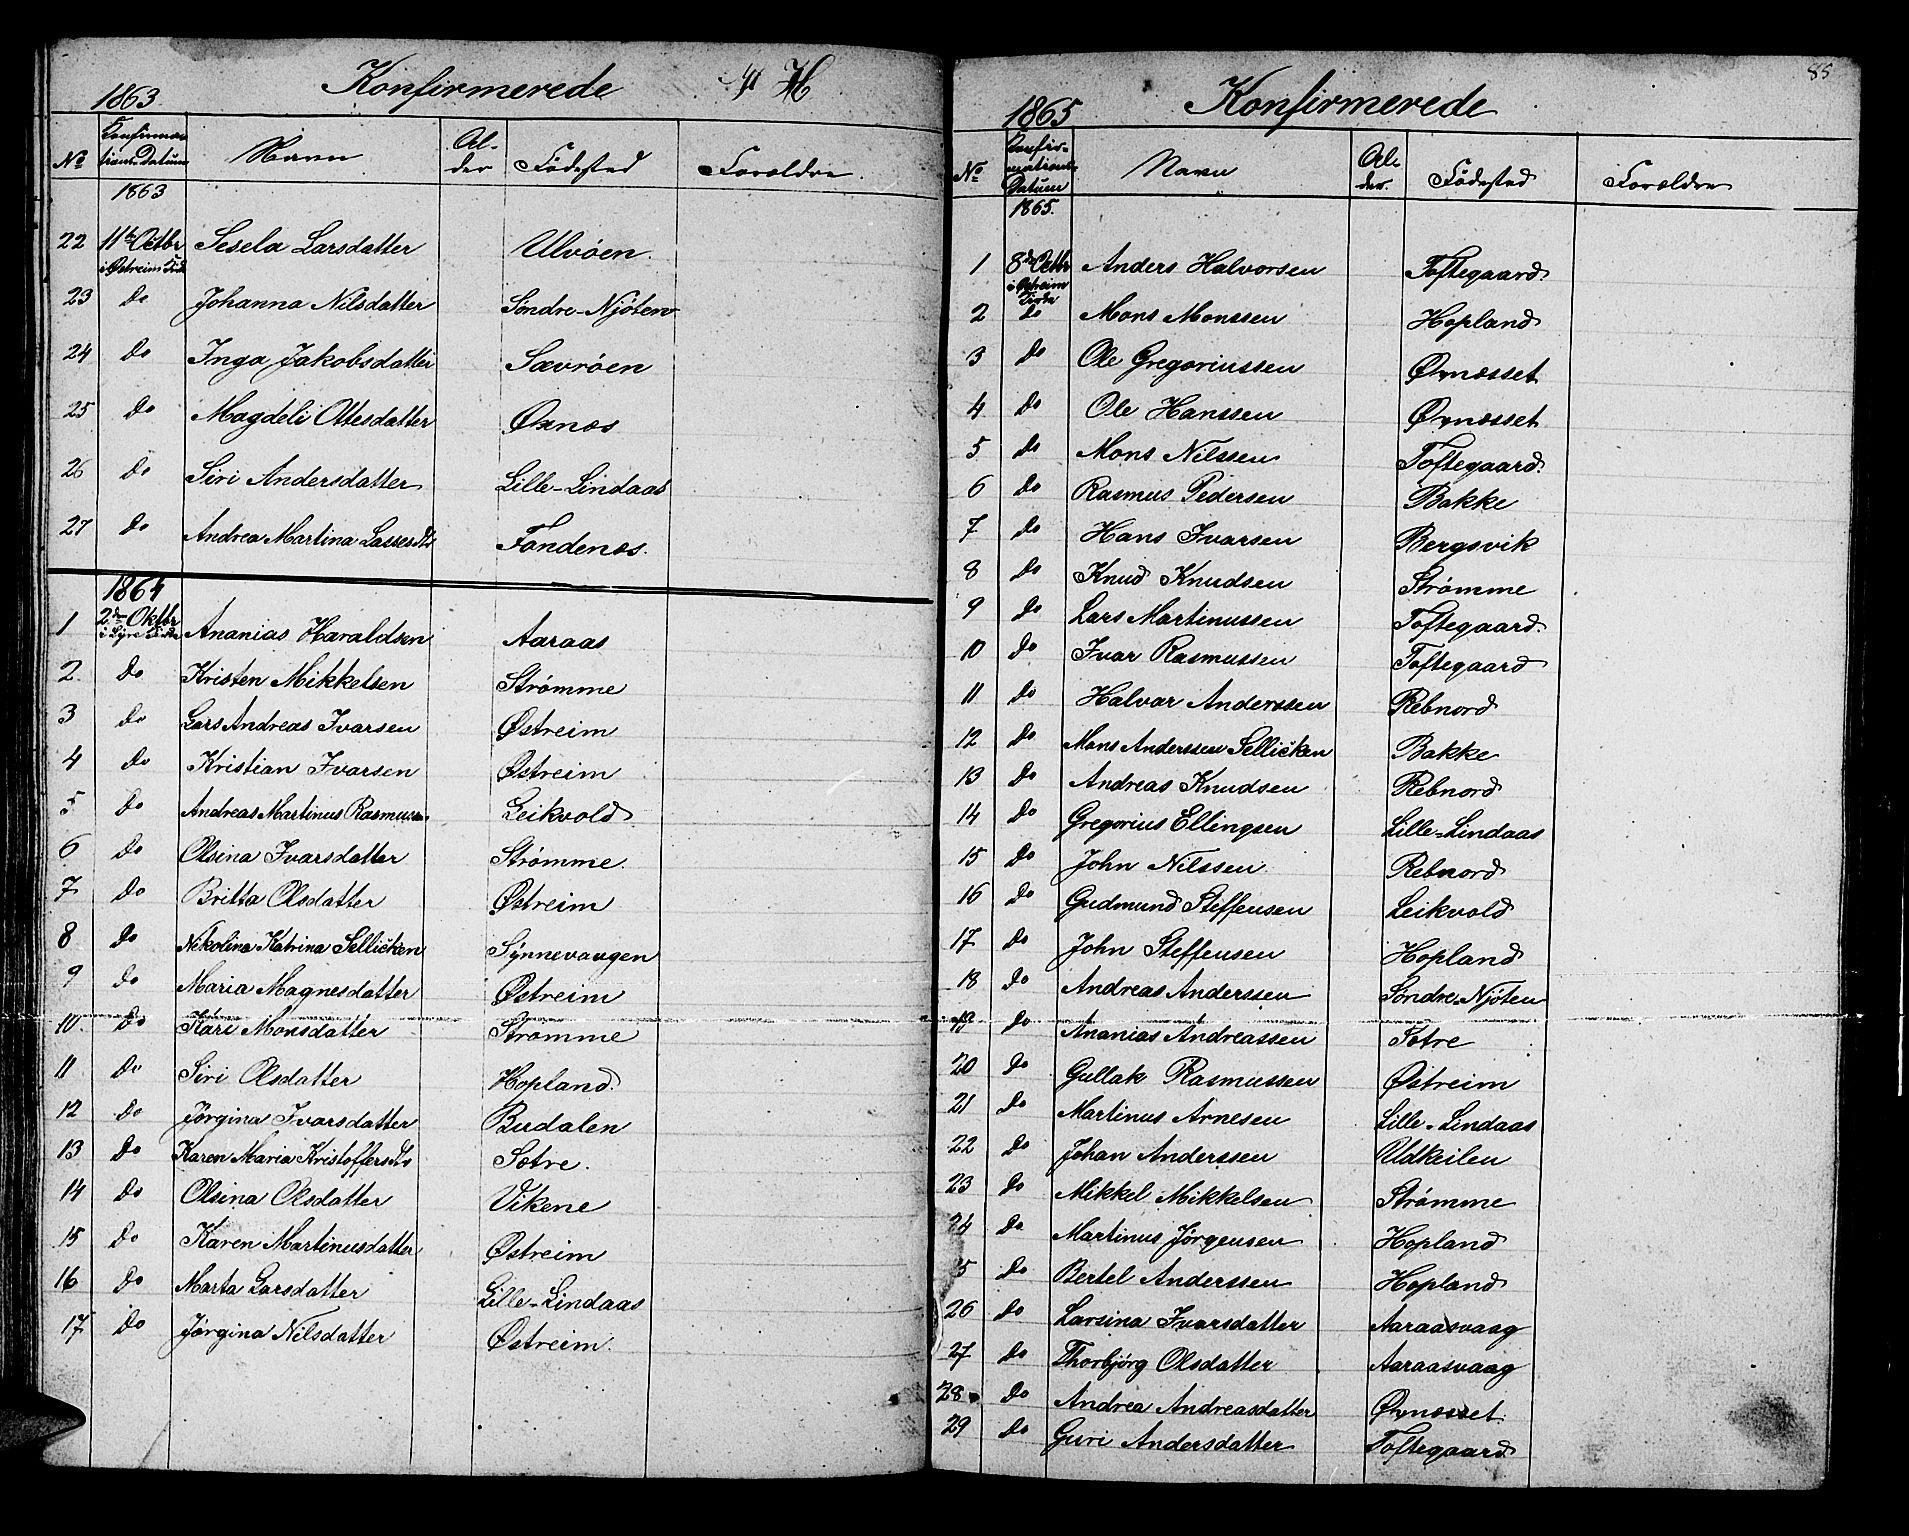 1863. Konfirmerede
No Konfirmationsdatum Navn Alder Födested Forældre
1863
22 11te Octbr i Østreim Kirke Sesela Larsdatter Ulvöen
23 do Johanna Nilsdatter Söndre-Njöten
24 do Inga Jakobsdatter Sævröen
25 do Magdeli Ottesdatter Øxnæs
26 do Siri Andersdatter Lille-Lindaas
27 do Andrea Martina Lassesdtr Fondenæs.
1864
1 2den Oktbr i Lyre Kirke Ananias Haraldsen Aaraas
2 do Kristen Mikkelsen Strömme
3 do Lars Andreas Ivarsen Østreim
4 do Kristian Ivarsen Østreim
5 do Andreas Martinus Rasmussen Leikvold
6 do Olsina Ivarsdatter Strömme.
7 do Britta Olsdatter Østreim
8 do Nikolina Katrina Sellicken Synnevaagen
9 do Maria Magnesdatter Østreim
10 do Kari Monsdatter Strömme
11 do Siri Olsdatter Hopland.
12 do Jörgina Ivarsdatter Budalen
13 do Karen Maria Kristoffersdtr Sotre.
14 do Olsina Olsdatter Vikene
15 do Karen Martinusdatter Østreim
16 do Marta Larsdatter Lille-Lindaas
17 do Jörgina Nilsdatter Østreim.
85
1865 Konfirmerede
No Konfirmations Datum Navn Alder. Födested Forældre
1865.
1 8de Octbr i Østreim Kirke Anders Halvorsen Toftegaard
2 do Mons Monssen Hopland
3 do Ole Gregoriussen Ørnæsset
4 do Ole Hanssen Ørnæsset
5 do Mons Nilssen Toftegaard
6 do Rasmus Pedersen Bakke
7 do Hans Ivarsen Bergsvik
8 do Knud Knudsen Strömme
9 do Lars Martinussen Toftegaard.
10 do Ivar Rasmussen Toftegaard
11 do Halvar Anderssen Rebnord
12 do Mons Anderssen Sellicken Bakke
13 do Andreas Knudsen Rebnord
14 do Gregorius Ellingsen Lille-Lindaas
15 do John Nilssen Rebnord
16 do Gudmund Steffensen Leikvold
17 do John Steffensen Hopland
18 do Andreas Anderssen Söndre-Njöten
19 do Ananias Andreassen Sotre
20 do Gullak Rasmussen Østreim
21 do Martinus Arnesen Lille-Lindaas
22 do Johan Anderssen Udkeilen
23 do Mikkel Mikkelsen Strömme
24 do Martinus Jörgensen Hopland
5 do Bertel Anderssen Hopland
26 do Larsina Ivarsdatter Aaraasvaag
27 do Thorbjörg Olsdatter Aaraasvaag
28 do Andrea Andreasdatter Ørnæsset
29 do Guri Andersdatter Toftegaard